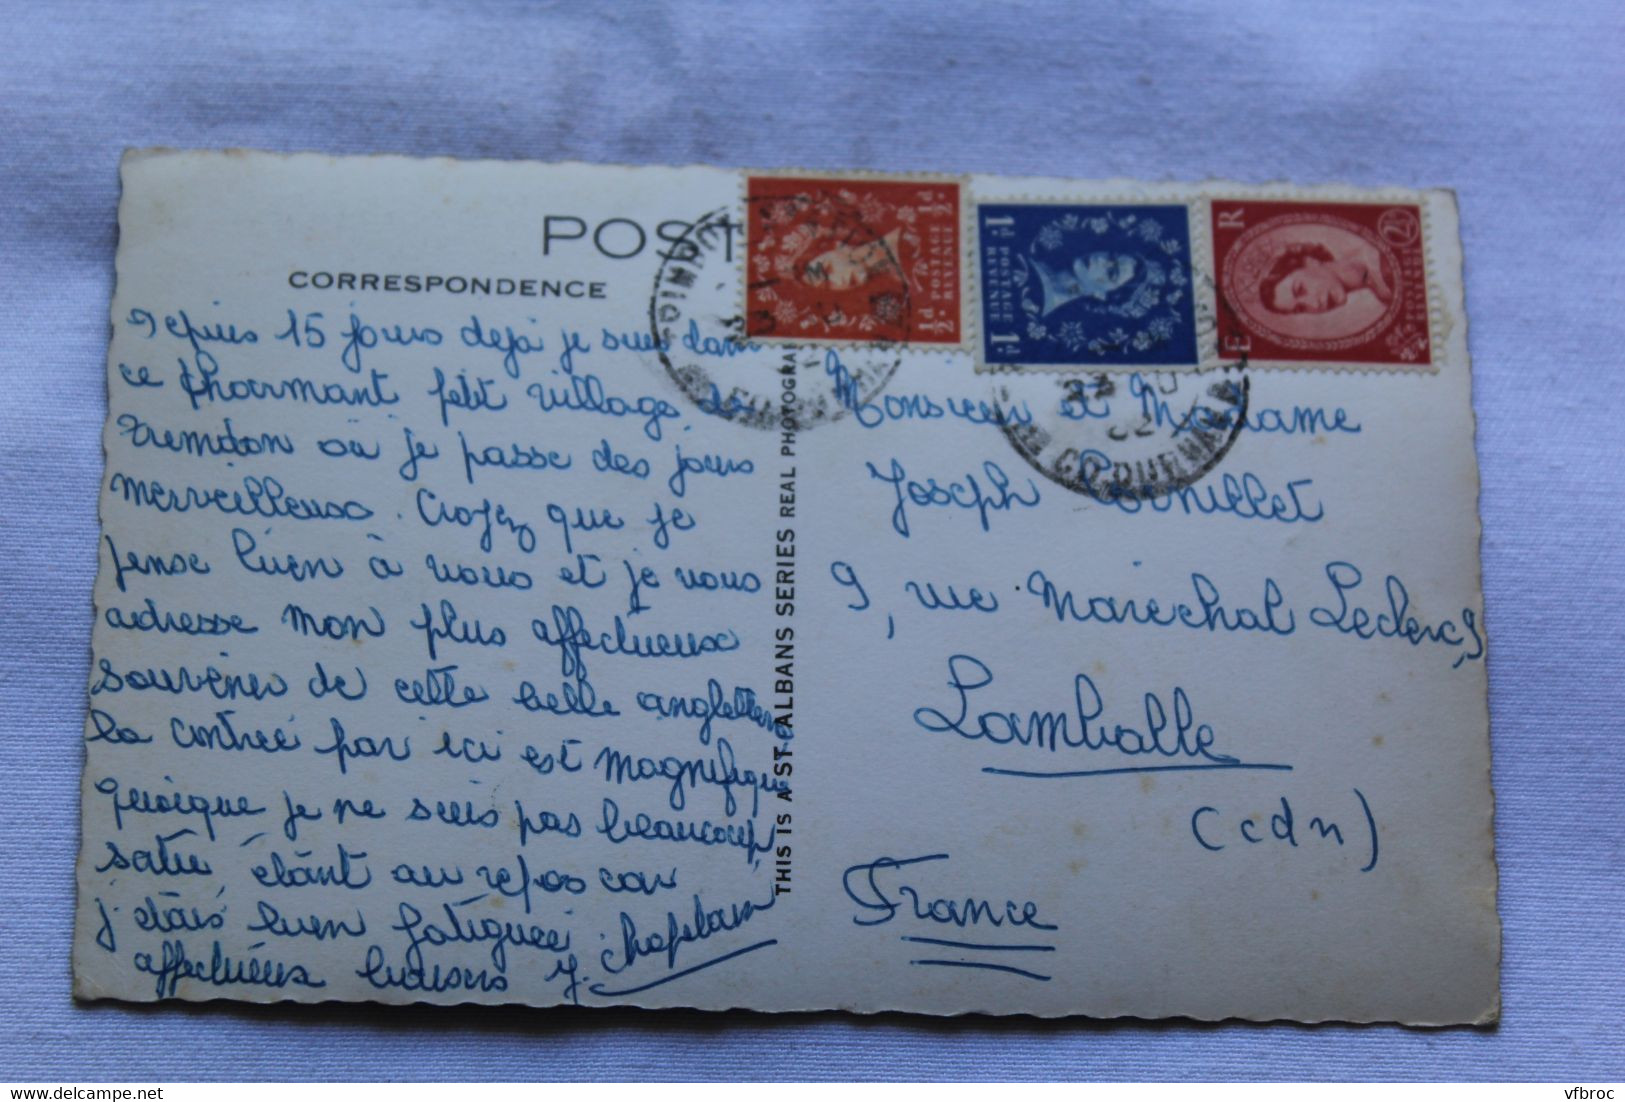 POST
CORRESPONDENCE
depuis 15 jours deja je suis dans
ce charmant petit village de
Trimdon où je passe des jours
merveilleuse. Croyez que je
pense bien à vous et je vous
adresse mon plus affectueux
souvenir de cette belle angleterre
la contrée par ici est magnifique
quoique je ne suis pas beaucoup
satue étant au repos car
j'étais bien fatiguée
affectueux baisers Y. chaplain
THIS IS A ST ALBANS SERIES REAL PHOTOGRA
½d POSTAGE REVENUE ½d
1d POSTAGE REVENUE 1d
E R
CO. DURHAM
Monsieur et Madame
Joseph
9, rue Marechal Leclerc, 9
Lamballe
(cdn)
France
vfbroc